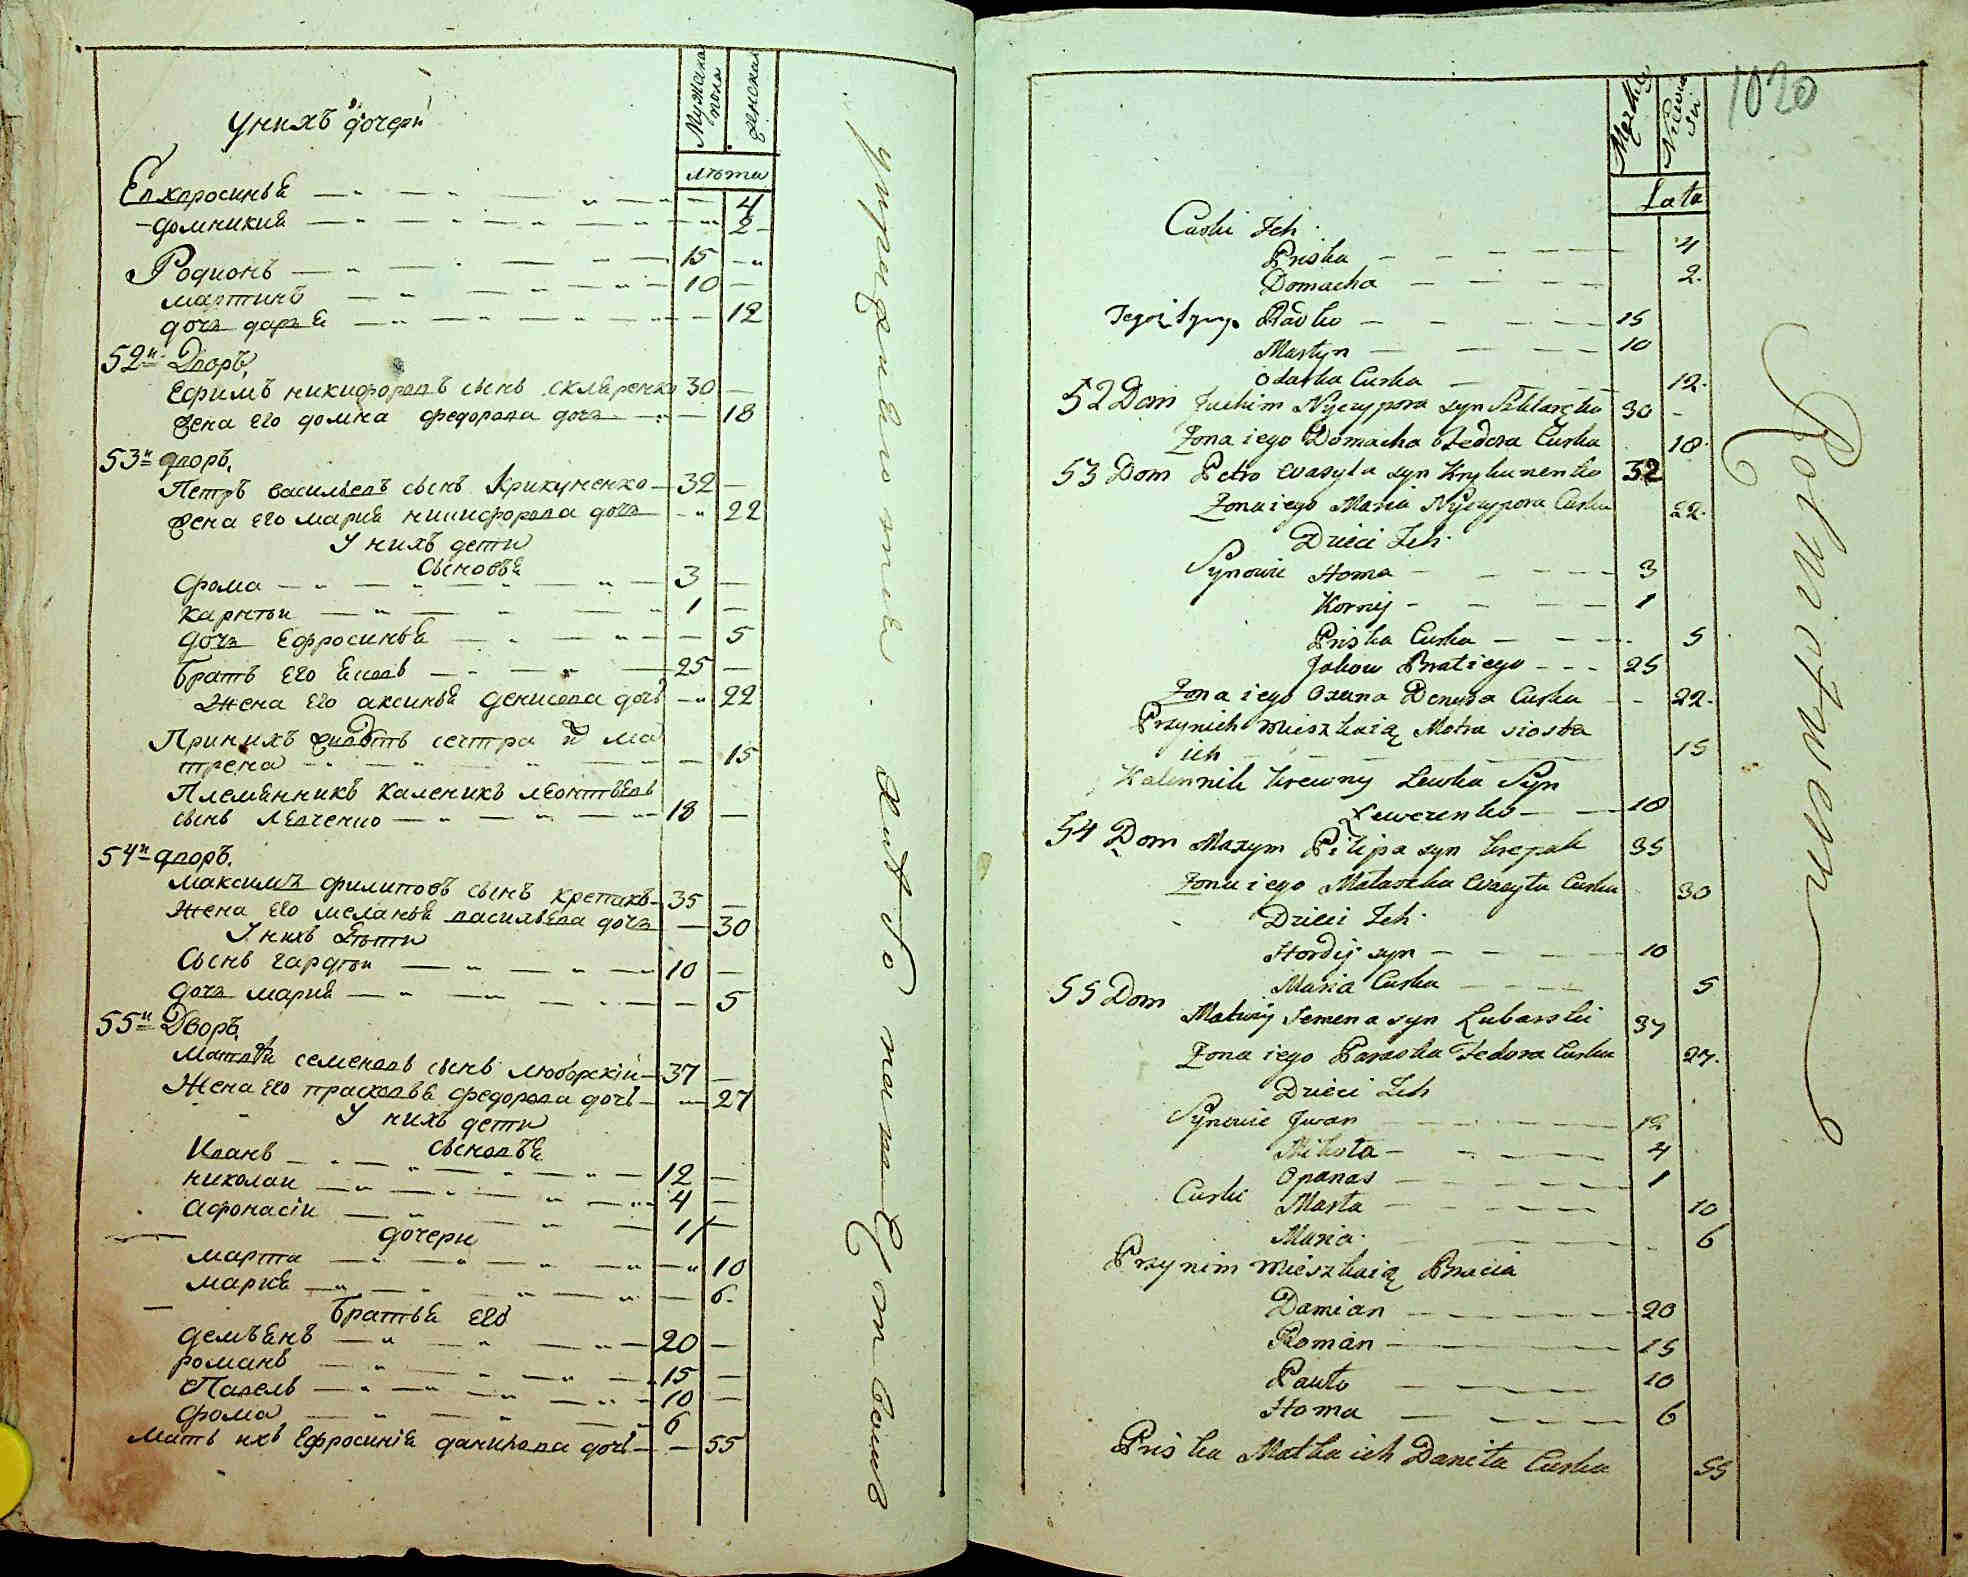 Мужска пола
женска
лѣта
У нихъ дочери
Евхросинья — 4
домникия — 2
Родионъ — 15
мартинъ — 10
дочь дарья — 12
52й Дворъ.
Ефимъ никифоровъ сынъ скляренко 30 —
жена его домна федорова дочь — 18
53й дворъ.
Петръ васильевъ сынъ Крикуненко — 32 —
жена его мария никифорова дочь — 22
У нихъ дети
Сыновья
фома — 3 —
карнѣи — 1 —
дочь Ефросинья — 5
братъ его Яковъ — 25 —
Жена его аксинья денисова дочь — 22
При нихъ сестра ма
трена — 15
Племянникъ каленикъ леонтьевъ
сынъ левченко — 18 —
54й дворъ.
максимъ филиповъ сынъ крепакъ — 35 —
Жена его меланья васильева дочь — 30
У нихъ дѣти
Сынъ гардѣи — 10 —
дочь мария — 5
55й Дворъ.
матвѣи семеновъ сынъ люборскіи — 37 —
Жена его прасковья федорова дочь — 27
У нихъ дети
сыновья
Иванъ — 12 —
николаи — 4 —
афонасіи — 1 —
дочери
марта — 10
мария — 6
братья его
демъянъ — 20 —
романъ — 15 —
Павелъ — 10 —
фома — 6
Мать ихъ Ефросинія данилова дочь — 55
1020
Męzkiey
Niewie
Lata
Curki Ich
Priska — 4
Domacha — 2.
Tegoż Syny. Radko — 15
Martyn — 10
Odarka Curka — 12.
52 Dom Juchim Nyczypora syn Szklareńko 30 —
Żona iego Domacha Fedora Curka 18.
53 Dom Petro Wasyla syn Krykunenko 32
Żona iego Maria Nyczypora Curka 22.
Dzieci Ich.
Synowie Homa — 3
Kornij — 1
Priska Curka — 5
Jakow Brat iego — 25
Żona iego Oxana Denysa Curka — 22.
Przy nich mieszkaią Motra siostra
ich — 15
Kalennik krewny Lewka Syn
— 18
54 Dom Maxym Pilipa syn Krepak 35
Żona iego Malaszka Wasyla Curka 30
Dzieci Ich.
Hordij syn — 10
Maria Curka — 5
55 Dom
Matwij Semena syn Lubarski 37
Żona iego Paraska Fedora Curka 27.
Dzieci Ich
Synowie Jwan — 12
Mikola — 4
Opanas — 1
Curki Marta — 10
Maria. — 6
Przy nim mieszkaią Bracia
Damian — 20
Roman — 15
Pawlo — 10
Homa — 6
Priska Matka ich Danila Curka 55